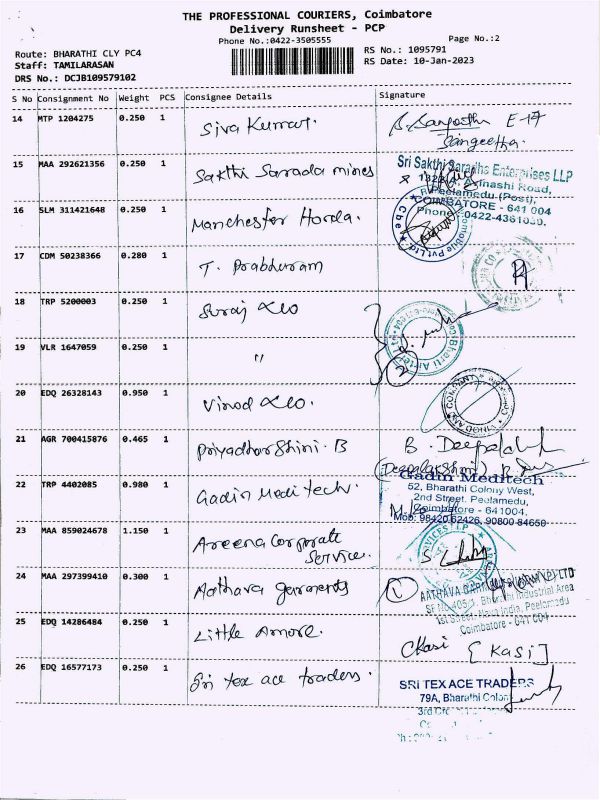 THE PROFESSIONAL COURIERS, Coimbatore
Delivery Runsheet - PCP
Phone No.:0422-3505555
Page No.:2
Route: BHARATHI CLY PC4
RS No.: 1095791
Staff: TAMILARASAN
RS Date: 10-Jan-2023
DRS No.: DCJB109579102
S No Consignment No Weight PCS Consignee Details Signature
14 MTP 1204275 0.250 1 Siva Kumar. E-17
Sangeetha.
15 MAA 292621356 0.250 1 Sakthi Sarada mines Sri Sakthi Saradha Enterprises LLP
Avinashi Road,
Peelamedu (Post),
16 SLM 311421648 0.250 1 Manchester Honda. COIMBATORE - 641 004
Phone: 0422-4361030.
17 CDM 50238366 0.280 1 T. Prabhuram
18 TRP 5200003 0.250 1 Suraj &co
19 VLR 1647059 0.250 1 "
2
20 EDQ 26328143 0.950 1 Vinod &co.
21 AGR 700415876 0.465 1 Priyadharshini. B B. Deepalakshmi
(Deepalakshmi)
22 TRP 4402085 0.980 1 Gadin Meditech. Gadin Meditech
52, Bharathi Colony West,
2nd Street, Peelamedu,
Coimbatore - 641004.
Mob: 98420 62426, 90800 84650
23 MAA 859024678 1.150 1 Areena Corporate
Service.
24 MAA 297399410 0.300 1 Aathava garments
Bharathi Industrial Area
Peelamedu
Coimbatore - 641 004
25 EDQ 14286484 0.250 1 Little Amore. CKasi [KASI]
26 EDQ 16577173 0.250 1 Sri tex ace traders. SRI TEX ACE TRADERS
79A, Bharathi Colony